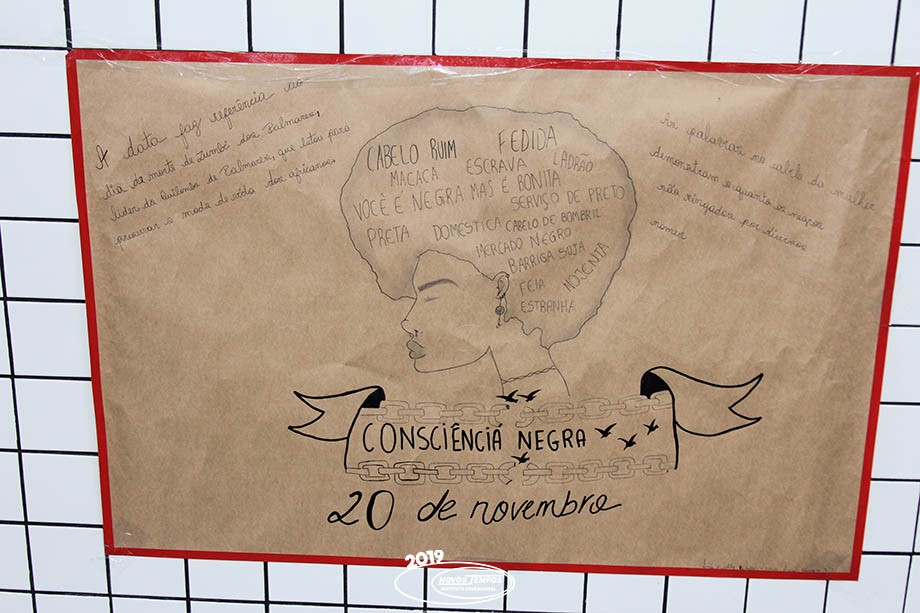 A data faz referência ao
dia da morte de Zumbi dos Palmares,
líder do Quilombo de Palmares, que lutou para
preservar o modo de vida dos africanos.
As palavras no cabelo da mulher
demonstram o quanto os negros
são xingados por diversos
nomes
CABELO RUIM FEDIDA
MACACA ESCRAVA LADRÃO
VOCÊ É NEGRA MAS É BONITA
SERVIÇO DE PRETO
PRETA DOMÉSTICA CABELO DE BOMBRIL
MERCADO NEGRO
BARRIGA SUJA
FEIA NOJENTA
ESTRANHA
CONSCIÊNCIA NEGRA
20 de novembro
2019
NOVOS TEMPOS